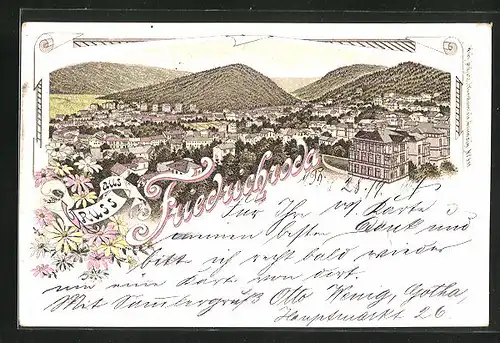 Gruss
aus
Friedrichroda
Für Ihr Karte u
meinen besten Dank und
bitt ich recht bald wieder
um eine Karte von dort.
Mit Sammlergruß Otto Wenig, Gotha,
Hauptmarkt 26.